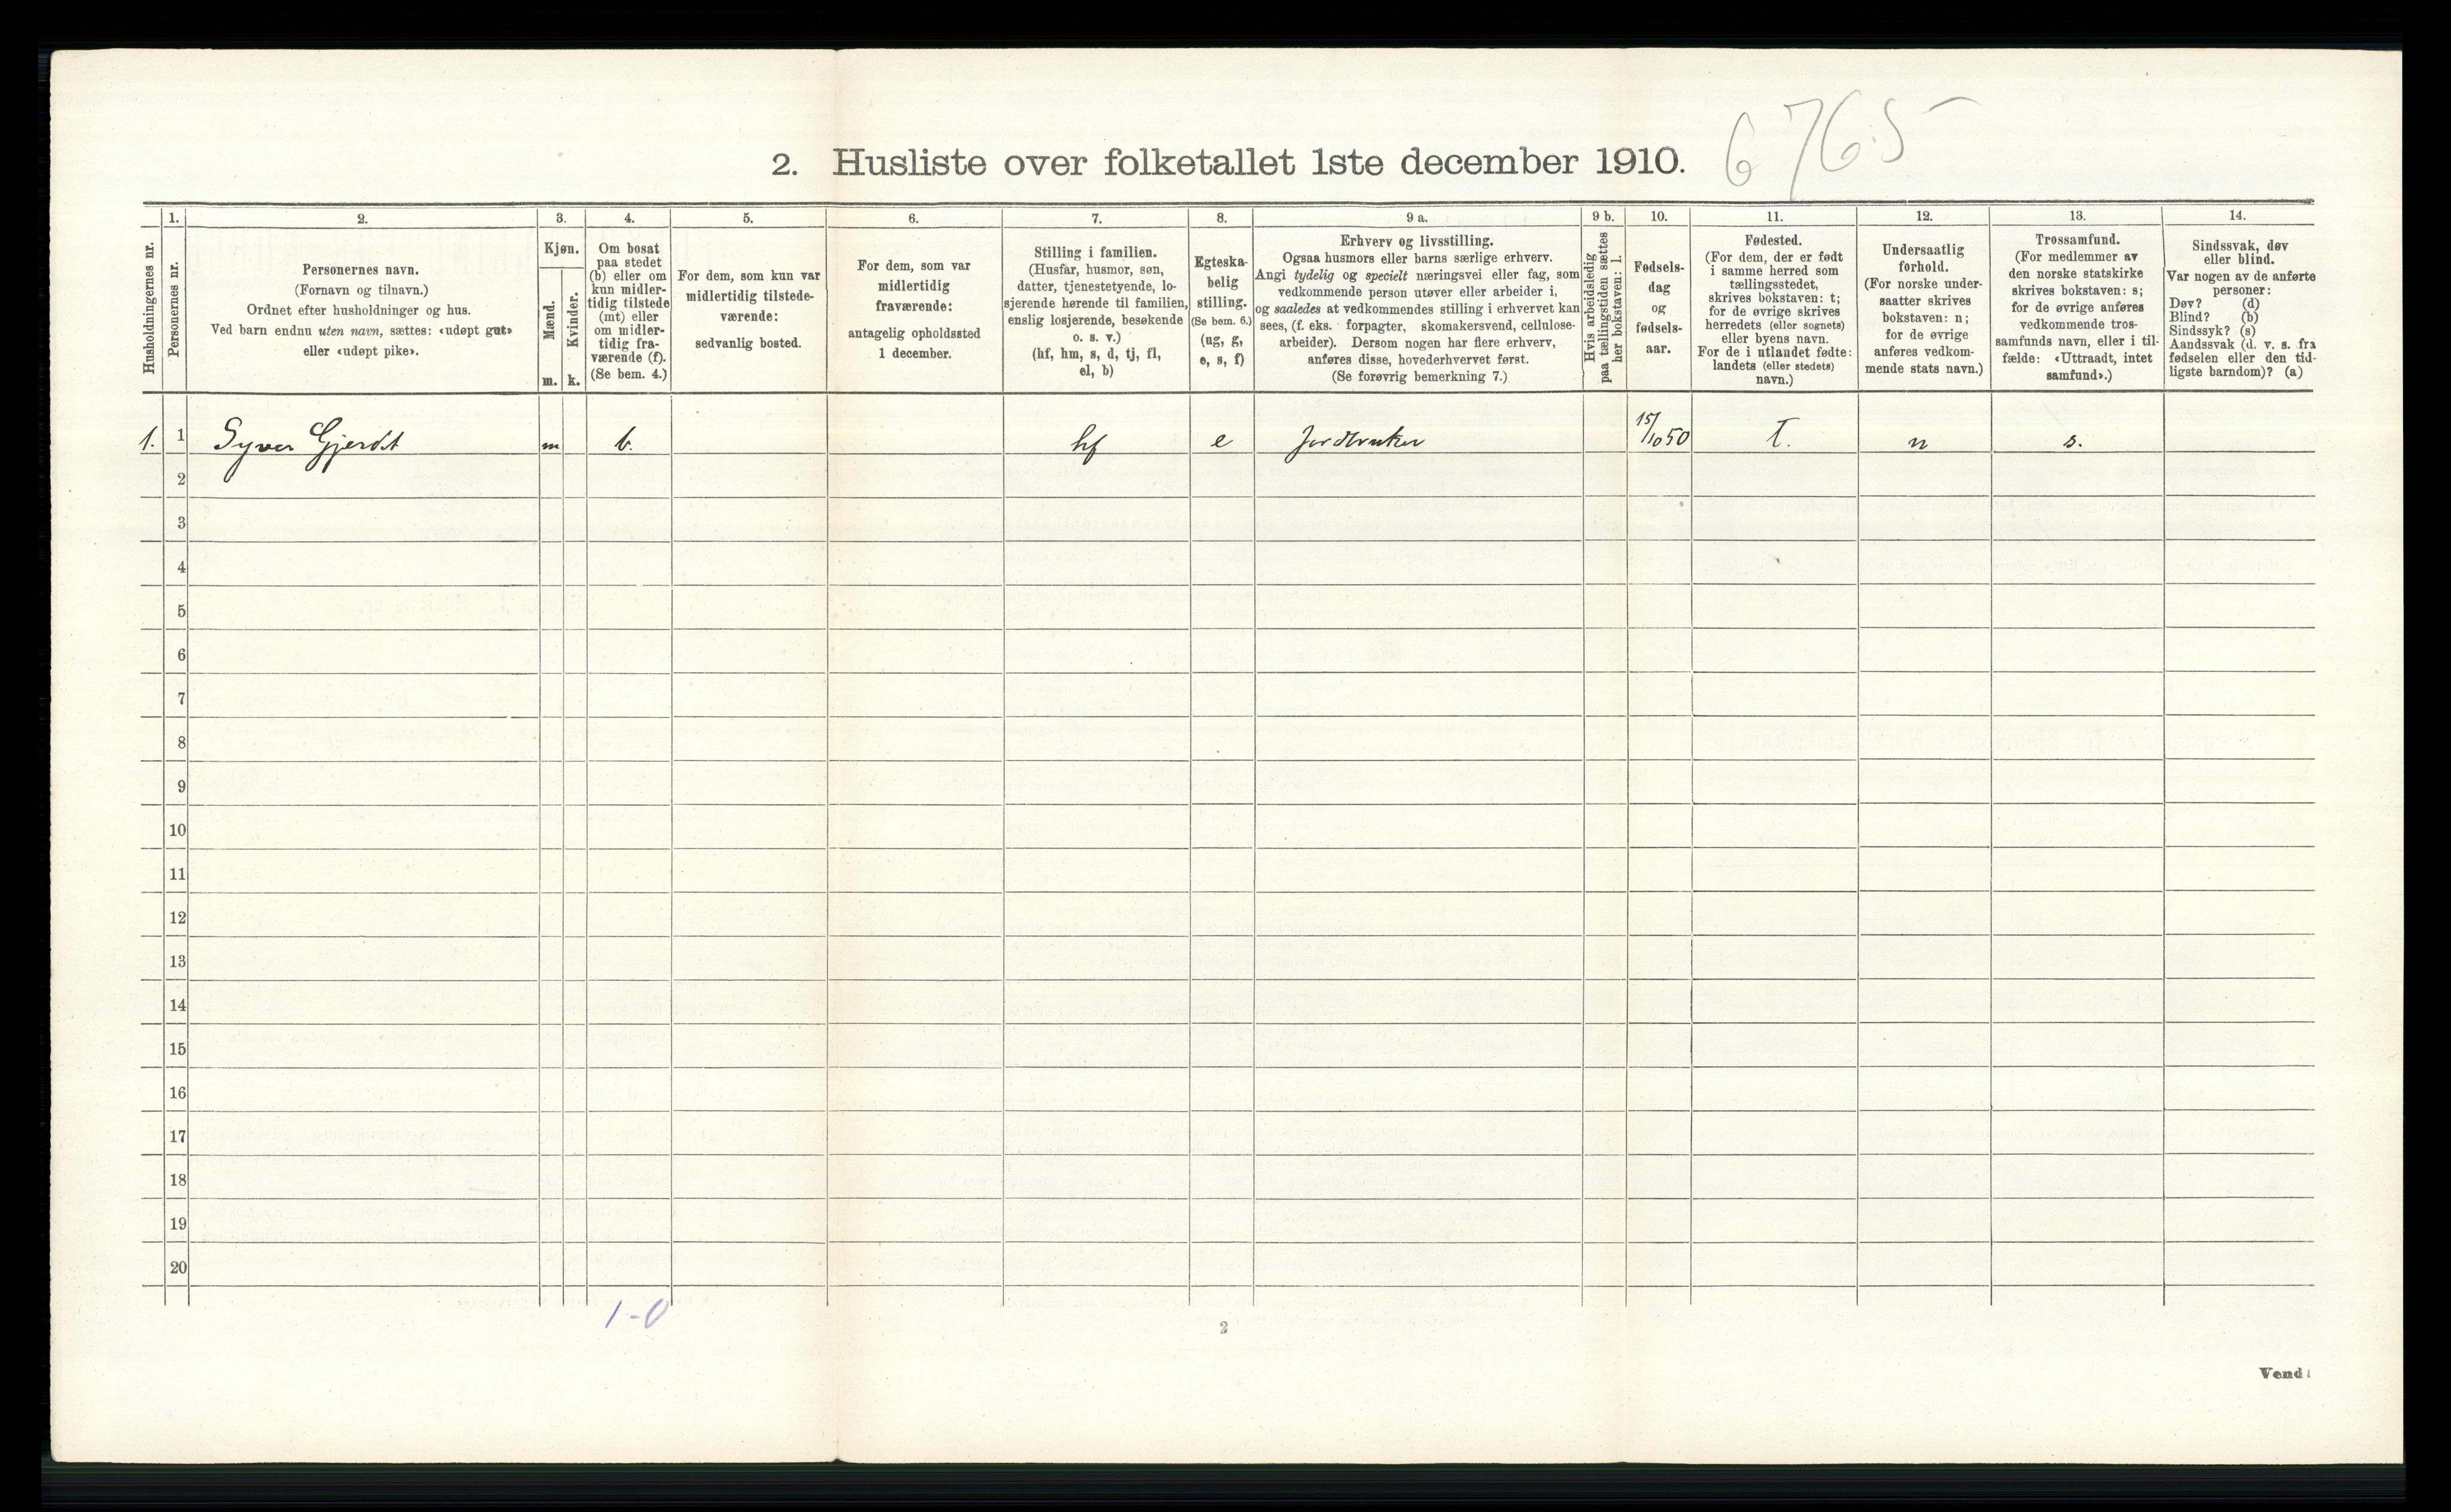 6765
2. Husliste over folketallet 1ste december 1910.
Husholdningernes nr.
1.
Personernes nr.
2.
Personernes navn.
(Fornavn og tilnavn.)
Ordnet efter husholdninger og hus.
Ved barn endnu uten navn, sættes: «udøpt gut»
eller «udøpt pike».
3.
Kjøn.
Mænd.
Kvinder.
m. k.
4.
Om bosat
paa stedet
(b) eller om
kun midler-
tidig tilstede
(mt) eller
om midler-
tidig fra-
værende (f).
(Se bem. 4.)
5.
For dem, som kun var
midlertidig tilstede-
værende:
sedvanlig bosted.
6.
For dem, som var
midlertidig
fraværende:
antagelig opholdssted
1 december.
7.
Stilling i familien.
(Husfar, husmor, søn,
datter, tjenestetyende, lo-
sjerende hørende til familien,
enslig losjerende, besøkende
o. s. v.)
(hf, hm, s, d, tj, fl,
el, b)
8.
Egteska-
belig
stilling.
(Se bem. 6.)
(ug, g,
e, s, f)
9 a.
Erhverv og livsstilling.
Ogsaa husmors eller barns særlige erhverv.
Angi tydelig og specielt næringsvei eller fag, som
vedkommende person utøver eller arbeider i,
og saaledes at vedkommendes stilling i erhvervet kan
sees, (f. eks. forpagter, skomakersvend, cellulose-
arbeider). Dersom nogen har flere erhverv,
anføres disse, hovederhvervet først.
(Se forøvrig bemerkning 7.)
9 b.
Hvis arbeidsledig
paa tællingstiden sættes
her bokstaven: l.
10.
Fødsels-
dag
og
fødsels-
aar.
11.
Fødested.
(For dem, der er født
i samme herred som
tællingsstedet,
skrives bokstaven: t;
for de øvrige skrives
herredets (eller sognets)
eller byens navn.
For de i utlandet fødte:
landets (eller stedets)
navn.)
12.
Undersaatlig
forhold.
(For norske under-
saatter skrives
bokstaven: n;
for de øvrige
anføres vedkom-
mende stats navn.)
13.
Trossamfund.
(For medlemmer av
den norske statskirke
skrives bokstaven: s;
for de øvrige anføres
vedkommende tros-
samfunds navn, eller i til-
fælde: «Uttraadt, intet
samfund».)
14.
Sindssvak, døv
eller blind.
Var nogen av de anførte
personer:
Døv? (d)
Blind? (b)
Sindssyk? (s)
Aandssvak (d. v. s. fra
fødselen eller den tid-
ligste barndom)? (a)
1. 1 Syver Gjerdet m b. hf e Jordbruker 15/10 50 T. n s.
2
3
4
5
6
7
8
9
10
11
12
13
14
15
16
17
18
19
20
1-0
2
Vend!